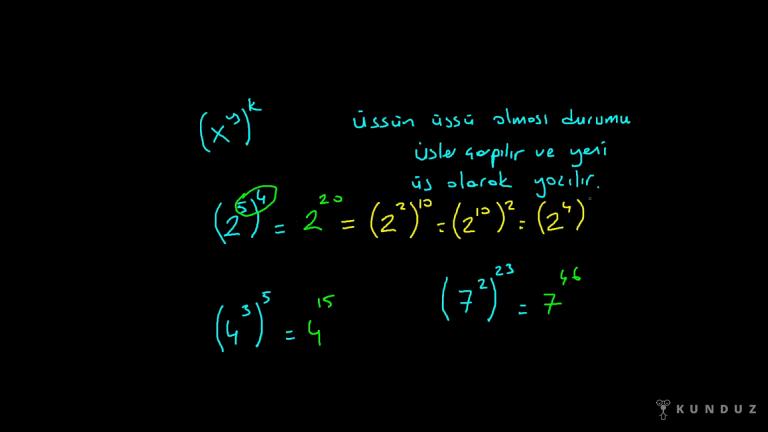 (x^y)^k
üssün üssü olması durumu
üsler çarpılır ve yeni
üs olarak yazılır.
(2^5)^4 = 2^20 = (2^2)^10 = (2^10)^2 = (2^4)
(7^2)^23 = 7^46
(4^3)^5 = 4^15
KUNDUZ